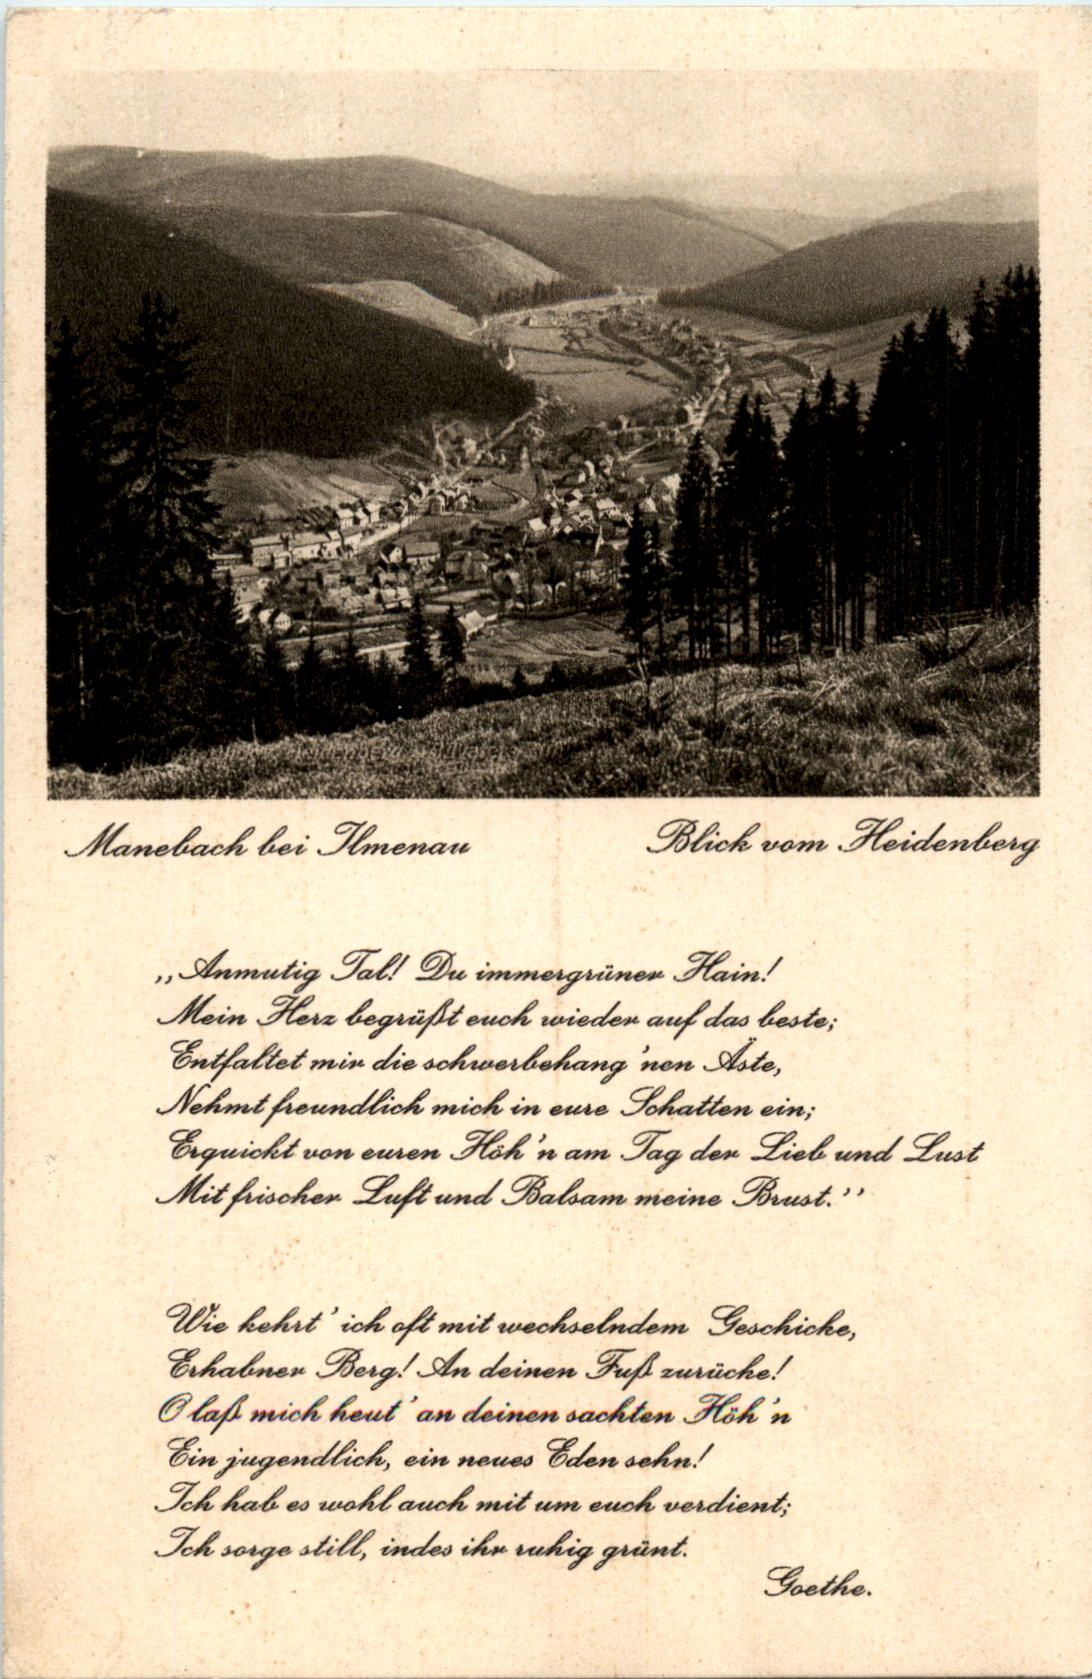 Manebach bei Ilmenau
Blick vom Heidenberg
„Anmutig Tal! Du immergrüner Hain!
Mein Herz begrüßt euch wieder auf das beste;
Entfaltet mir die schwerbehang'nen Äste,
Nehmt freundlich mich in eure Schatten ein;
Erquickt von euren Höh'n am Tag der Lieb und Lust
Mit frischer Luft und Balsam meine Brust.''
Wie kehrt' ich oft mit wechselndem Geschicke,
Erhabner Berg! An deinen Fuß zurücke!
O laß mich heut' an deinen sachten Höh'n
Ein jugendlich, ein neues Eden sehn!
Ich hab es wohl auch mit um euch verdient;
Ich sorge still, indes ihr ruhig grünt.
Goethe.